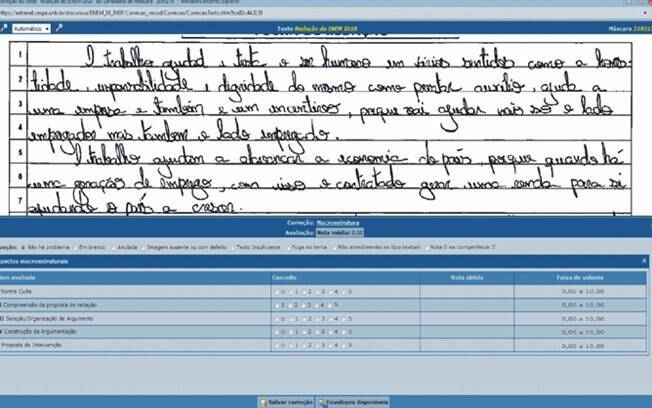 Automático
Texto Redação do ENEM 2010
Máscara
1 O trabalho ajuda e o ser humano um vários sentidos como a hones-
2 tidade, responsabilidade, dignidade do mesmo como prestar auxílio, ajuda a
3 uma empresa e também e um incentivos, porque vai ajudar não só o lado
4 empregador mas também o lado empregado.
5 O trabalho ajudam a alavancar a economia do país, porque quando há
6 uma geração de emprego, com isso o contratado gerar uma renda para si
7 ajudando o país a crescer.
Correção: Macroestrutura
Avaliação: Nota média: 0.00
Não há problema Em branco Anulada Imagem ausente ou com defeito Texto Insuficiente Fuga ao tema Não atendimento ao tipo textual Nota 0 na competência II
spectos macroestruturais
tem avaliado Conceito Nota obtida Faixa de valores
Norma Culta 0 1 2 3 4 5 0,00 a 10,00
Compreensão da proposta de redação 1 2 3 4 5 0,00 a 10,00
Seleção/Organização de Argumento 0 1 2 3 4 5 0,00 a 10,00
Construção da Argumentação 0 1 2 3 4 5 0,00 a 10,00
Proposta de Intervenção 0 1 2 3 4 5 0,00 a 10,00
Salvar correção Envelopes disponíveis